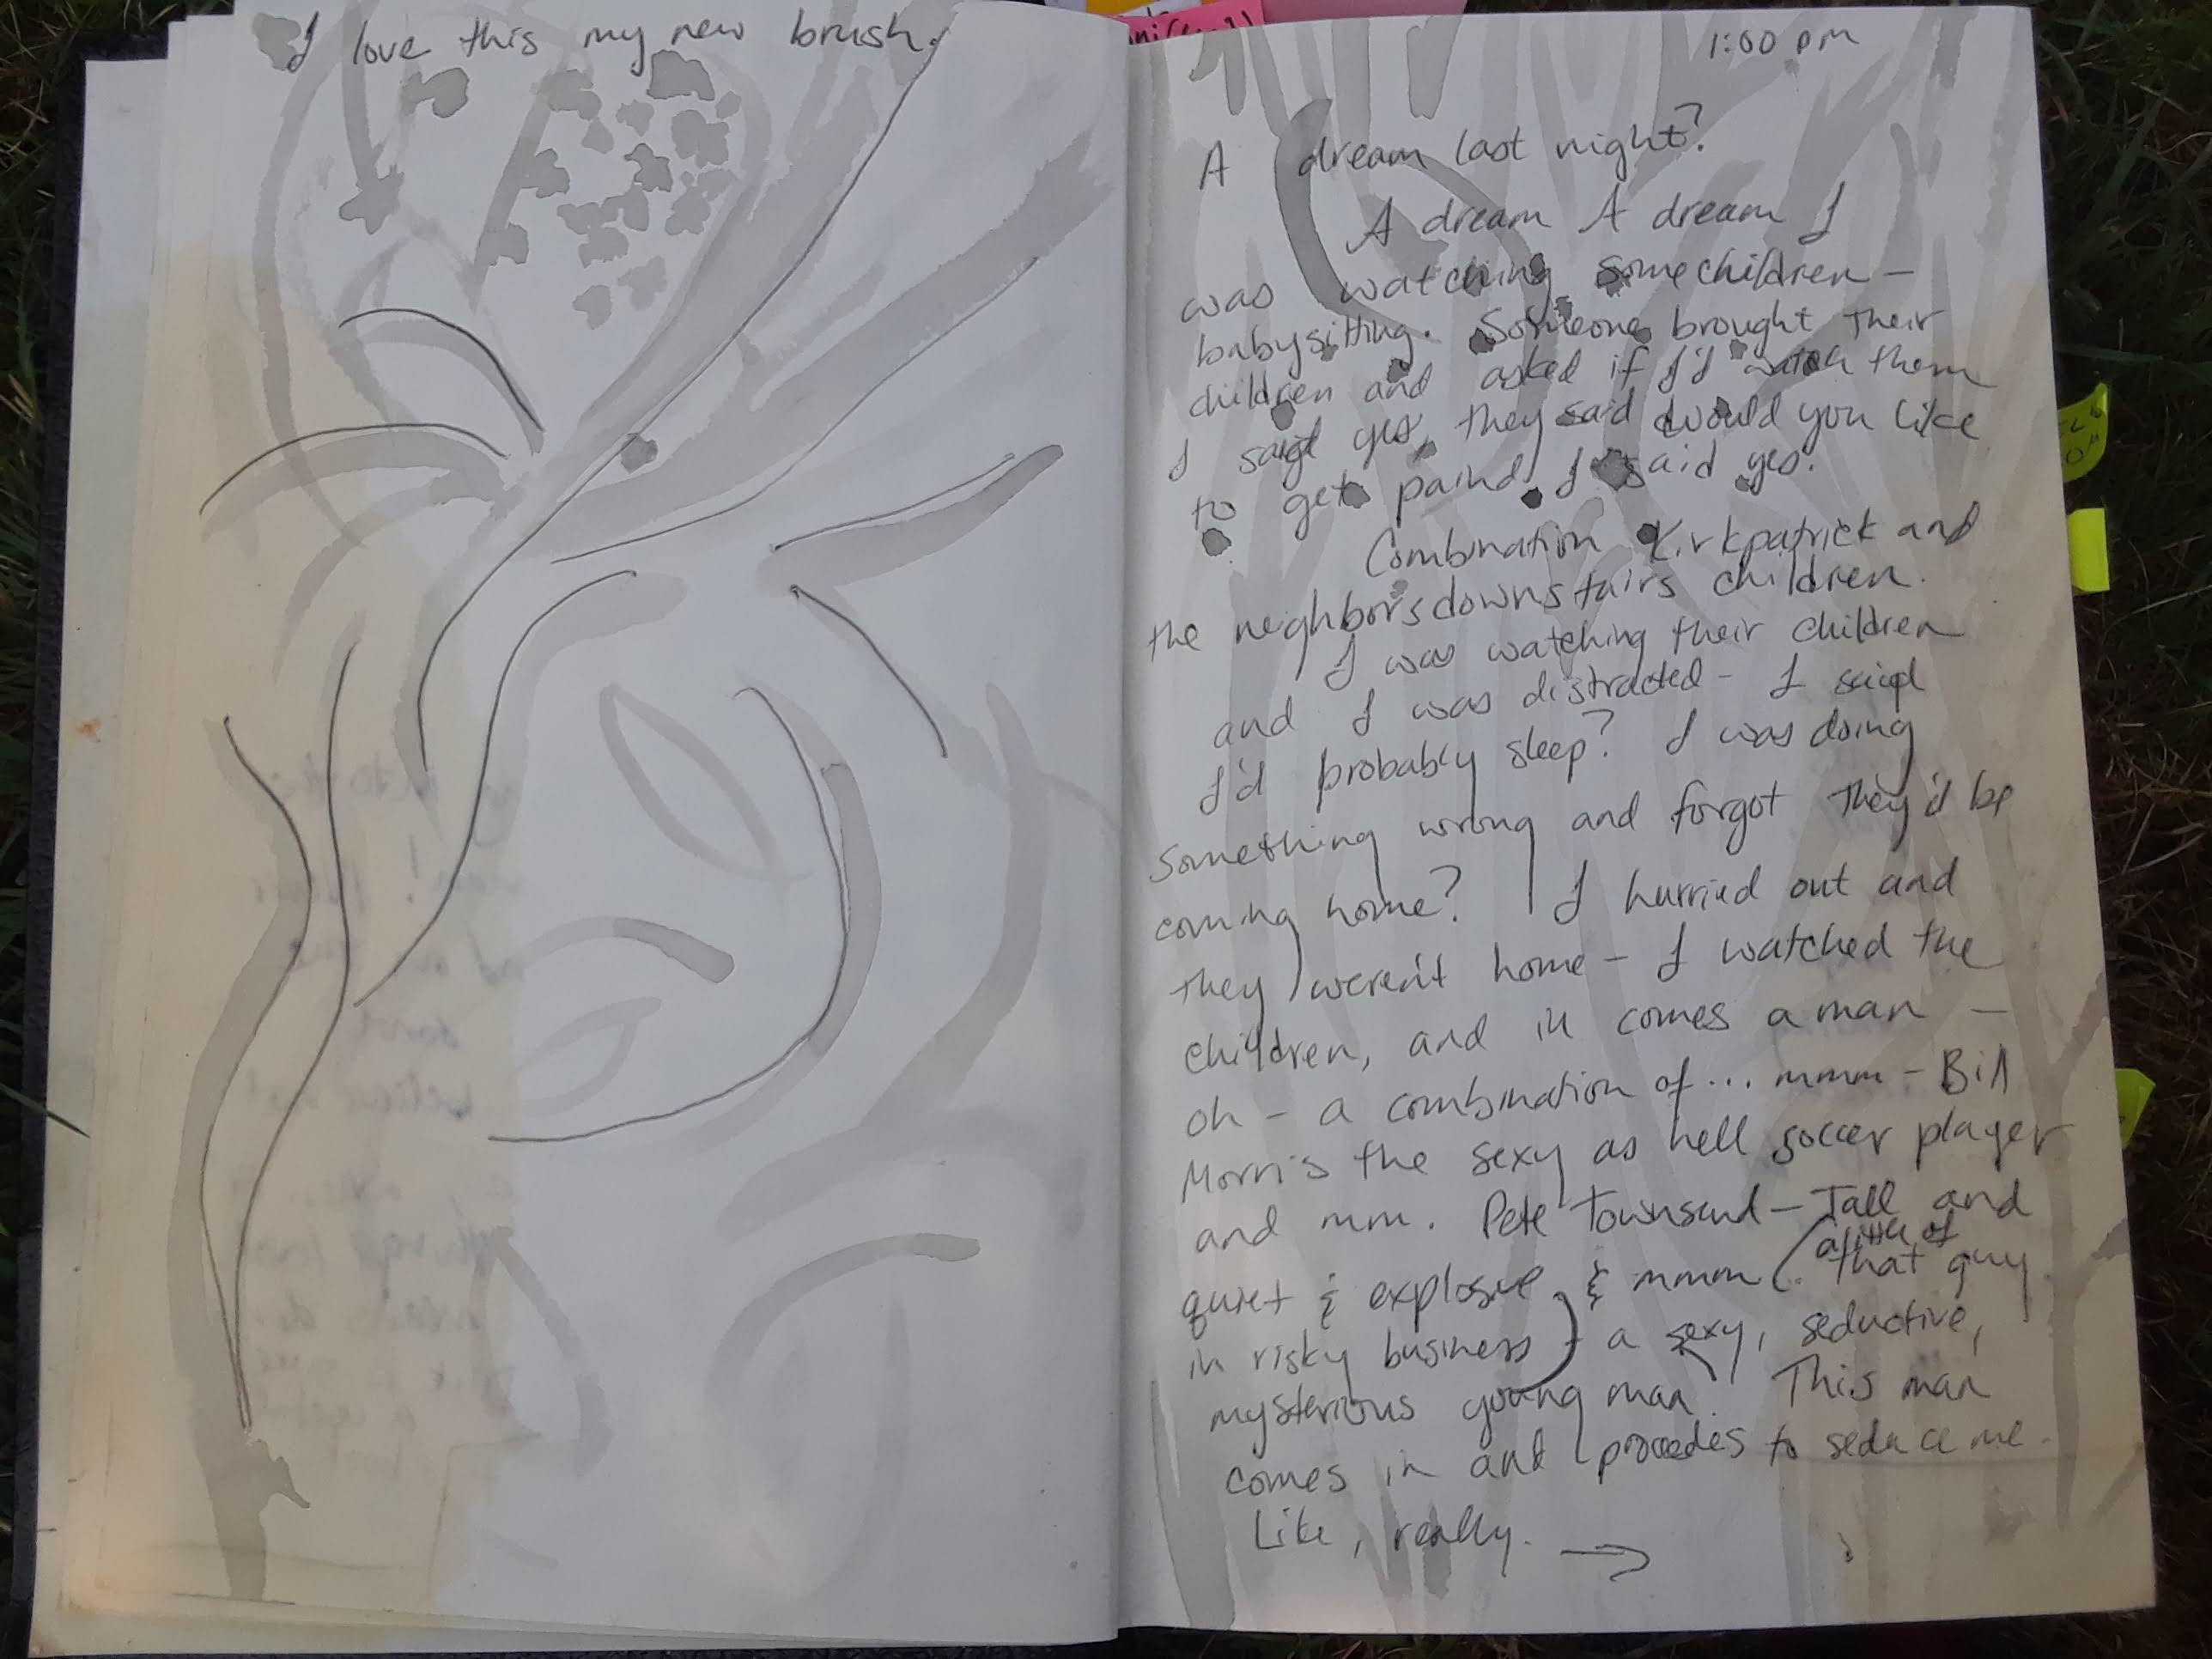 I love this my new brush.
1:00 pm
A dream last night?
A dream A dream I
was watching some children -
babysitting. Someone brought their
children and asked if I'd watch them
I said yes, they said would you like
to get paind. I said yes.
Combination Kirkpatrick and
the neighbors downstairs children.
I was watching their children
and I was distracted - I said
I'd probably sleep? I was doing
something wrong and forgot they'd be
coming home? I hurried out and
they weren't home - I watched the
children, and in comes a man -
oh - a combination of ... mmm - Bill
Morris the sexy as hell soccer player
and mm. Pete Townsend - Tall and
quiet & explosive & mmm (a little of that guy
in risky business) - a sexy, seductive,
mysterious young man. This man
comes in and procedes to seduce me.
Like, really. →